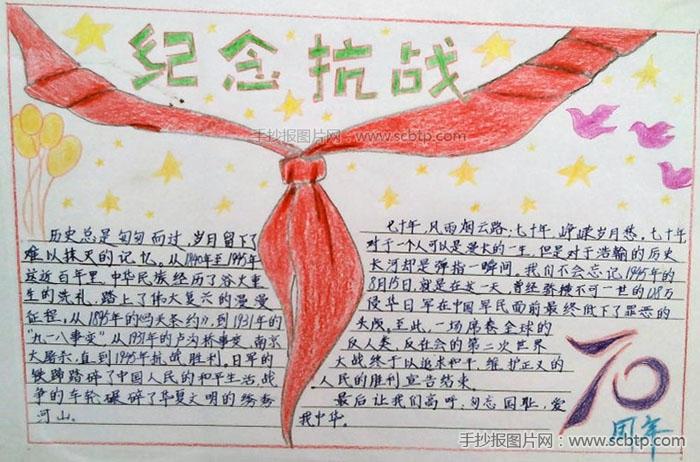 纪念抗战
手抄报图片网：www.scbtp.com
历史总是匆匆而过，岁月留下了
难以抹灭的记忆。从1840年至1945年
这近百年里，中华民族经历了浴火重
生的洗礼，踏上了伟大复兴的漫漫
征程，从1895年的《马关条约》，到1931年的
“九一八事变”从1937年的卢沟桥事变、南京
大屠杀，直到1945年抗战胜利。日军的
铁蹄踏碎了中国人民的和平生活，战
争的车轮碾碎了华夏文明的锦秀
河山。
七十年，风雨烟云路，七十年，峥嵘岁月愁。七十年，
对于一个人可以是漫长的一生，但是对于浩翰的历史
长河却是弹指一瞬间。我们不会忘记1945年的
8月15日，就是在这一天，曾经骄横不可一世的128万
侵华日军在中国军民面前最终低下了罪恶的
头颅。至此，一场席卷全球的
反人类、反社会的第二次世界
大战终于以追求和平、维护正义的
人民的胜利宣告结束。
最后让我们高呼，勿忘国耻，爱
我中华。
70
周年
手抄报图片网：www.scbtp.com